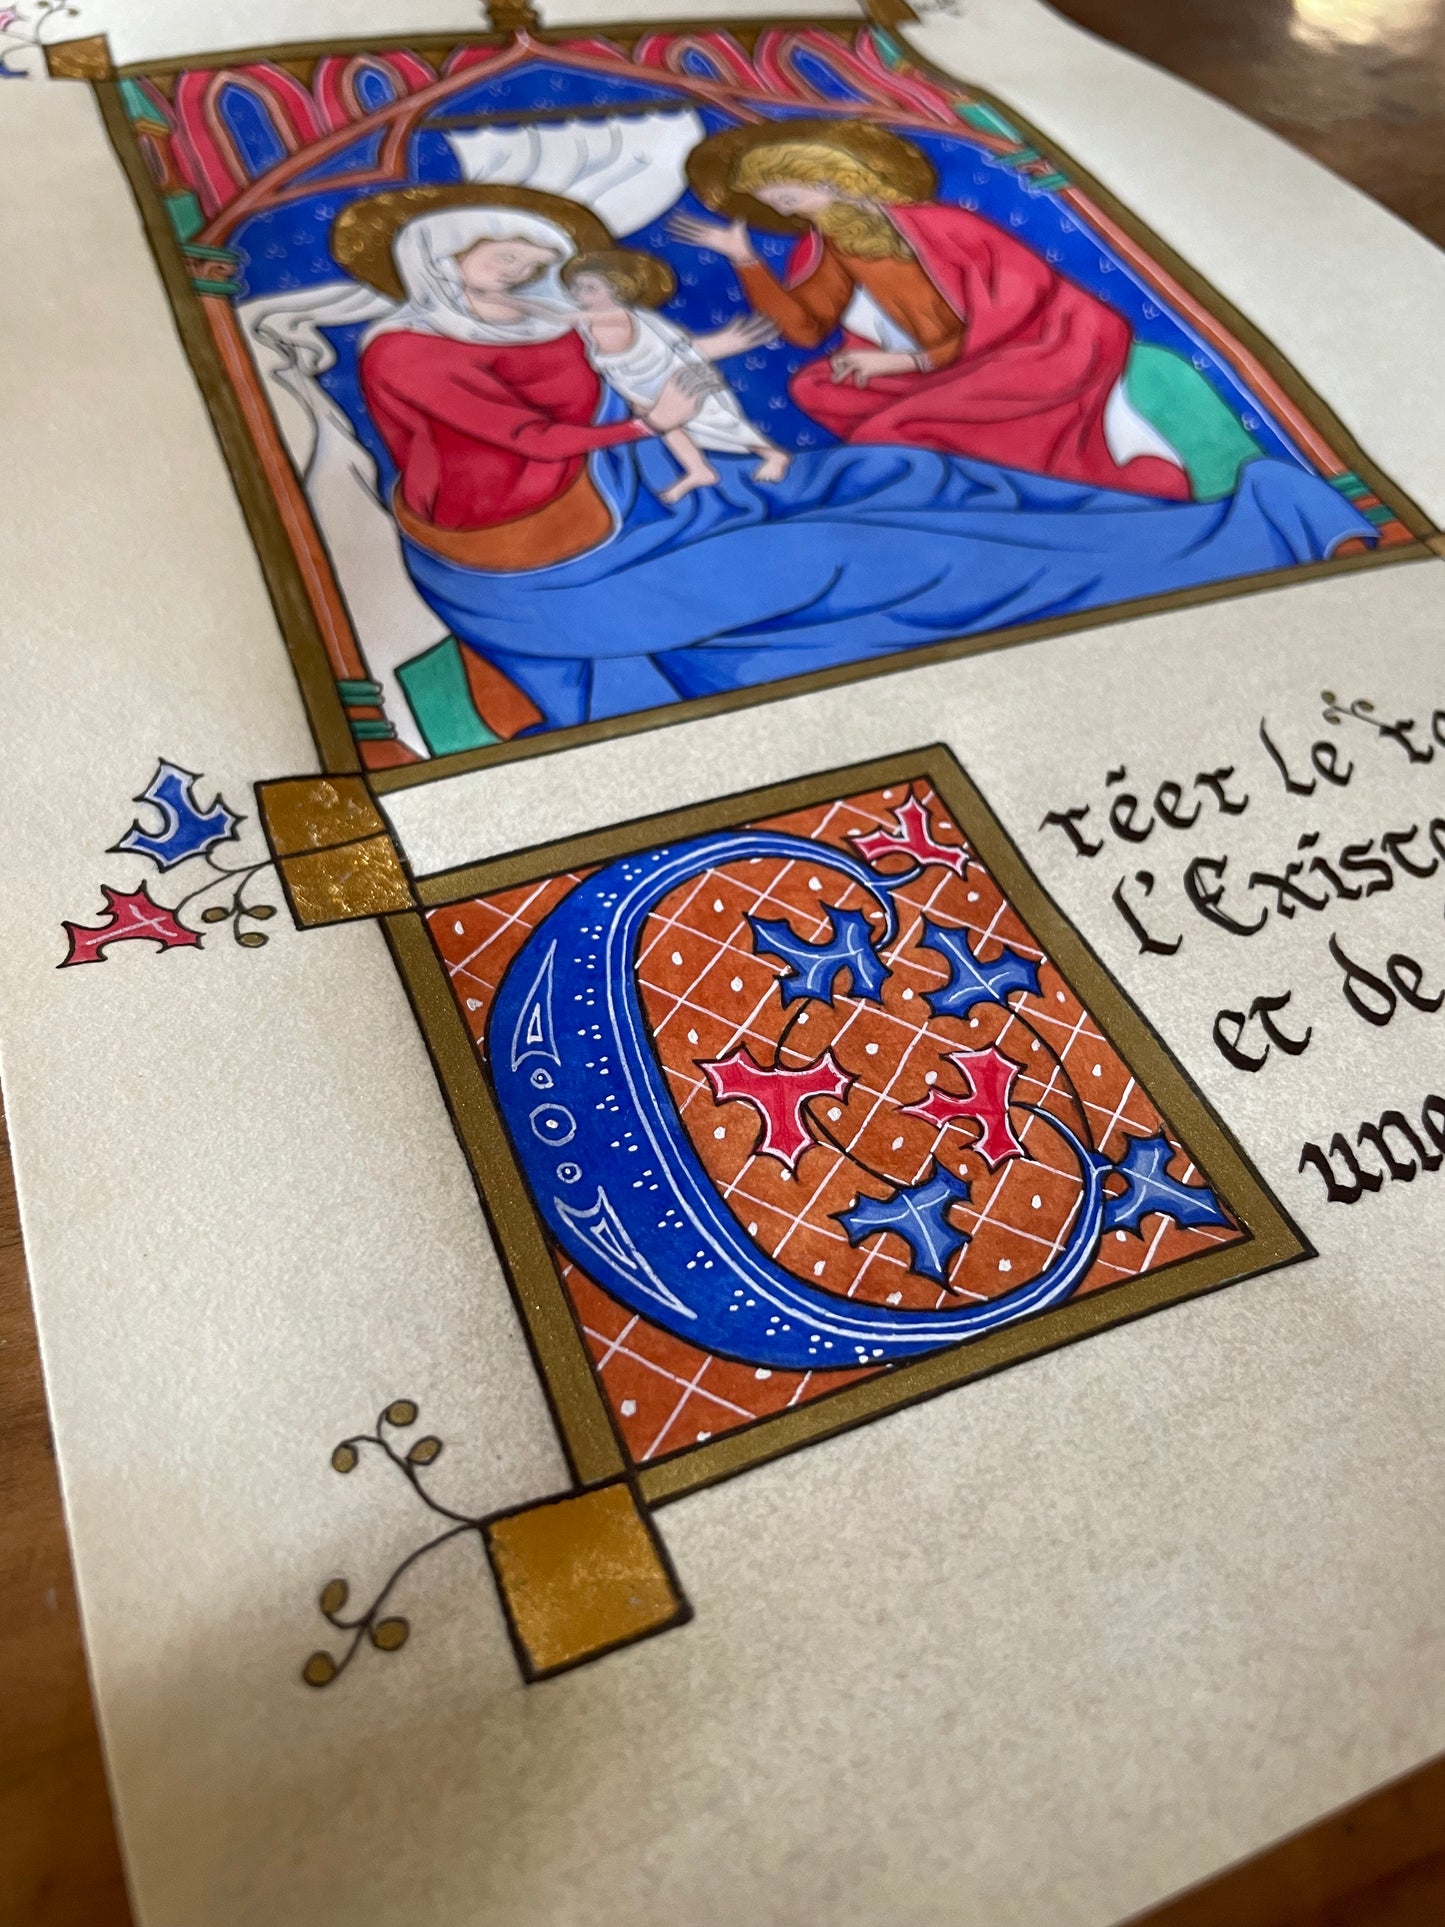 Créer le
l'Existe
et de
une